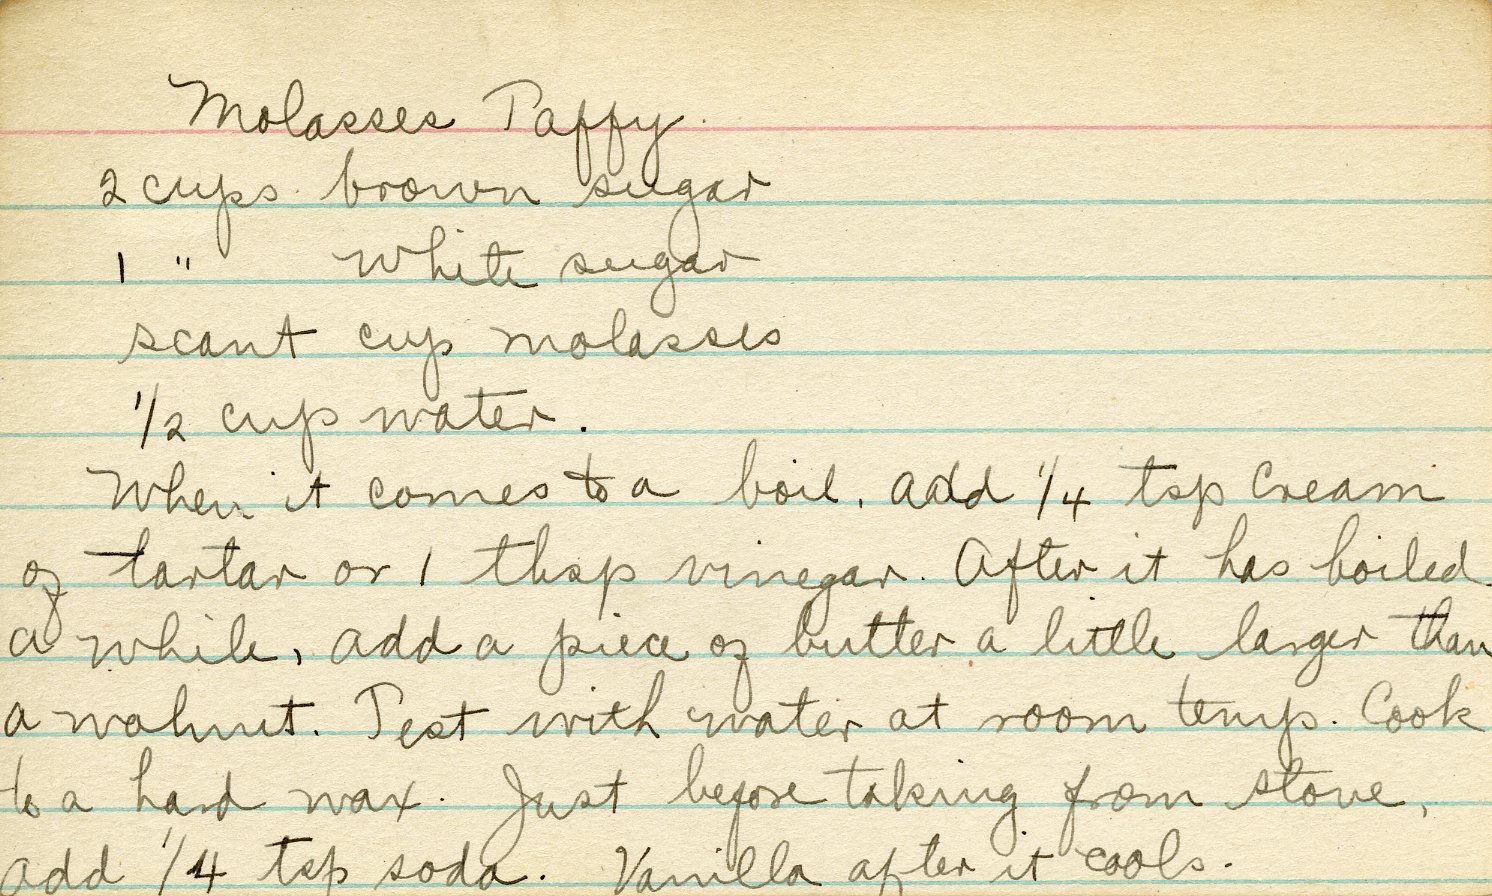 Molasses Taffy
2 cups brown sugar
1 " White sugar
scant cup molasses
1/2 cup water.
When it comes to a boil, add 1/4 tsp Cream
of tartar or 1 tbsp vinegar. After it has boiled
a while, add a piece of butter a little larger than
a walnut. Test with water at room temp. Cook
to a hard wax. Just before taking from stove,
add 1/4 tsp soda. Vanilla after it cools.